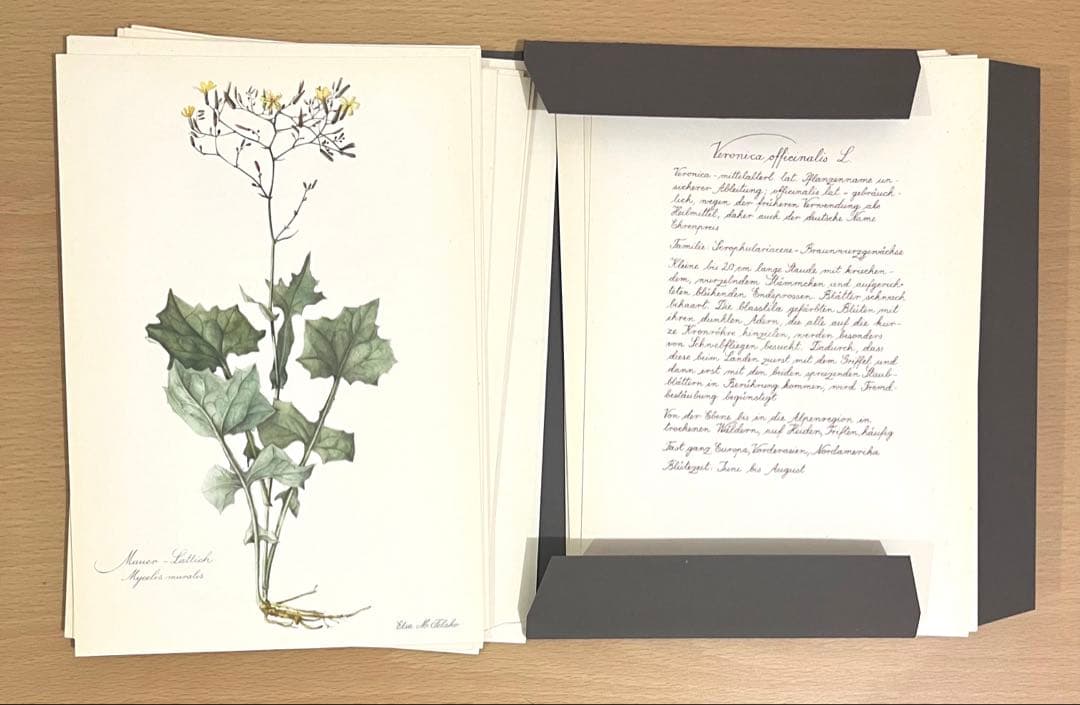 Mauer-Lattich
Mycelis muralis
Else M. Felsko
Veronica officinalis L.
Veronica - mittelalterl. lat. Pflanzenname un-
sicherer Ableitung; officinalis lat. - gebräuch-
lich, wegen der früheren Verwendung als
Heilmittel, daher auch der deutsche Name
Ehrenpreis
Familie: Scrophulariaceae - Braunwurzgewächse
Kleine bis 20 cm lange Staude mit kriechen-
dem, wurzelndem Stämmchen und aufgerich-
teten blühenden Endsprossen. Blätter schwach
behaart. Die blasslila gefärbten Blüten mit
ihren dunklen Adern, die alle auf die kur-
ze Kronröhre hinzielen, werden besonders
von Schwebfliegen besucht. Dadurch, dass
diese beim Landen zuerst mit dem Griffel und
dann erst mit den beiden spreizenden Staub-
blättern in Berührung kommen, wird Fremd-
bestäubung begünstigt
Von der Ebene bis in die Alpenregion in
trockenen Wäldern, auf Heiden, Triften, häufig
Fast ganz Europa, Vorderasien, Nordamerika
Blütezeit: Juni bis August